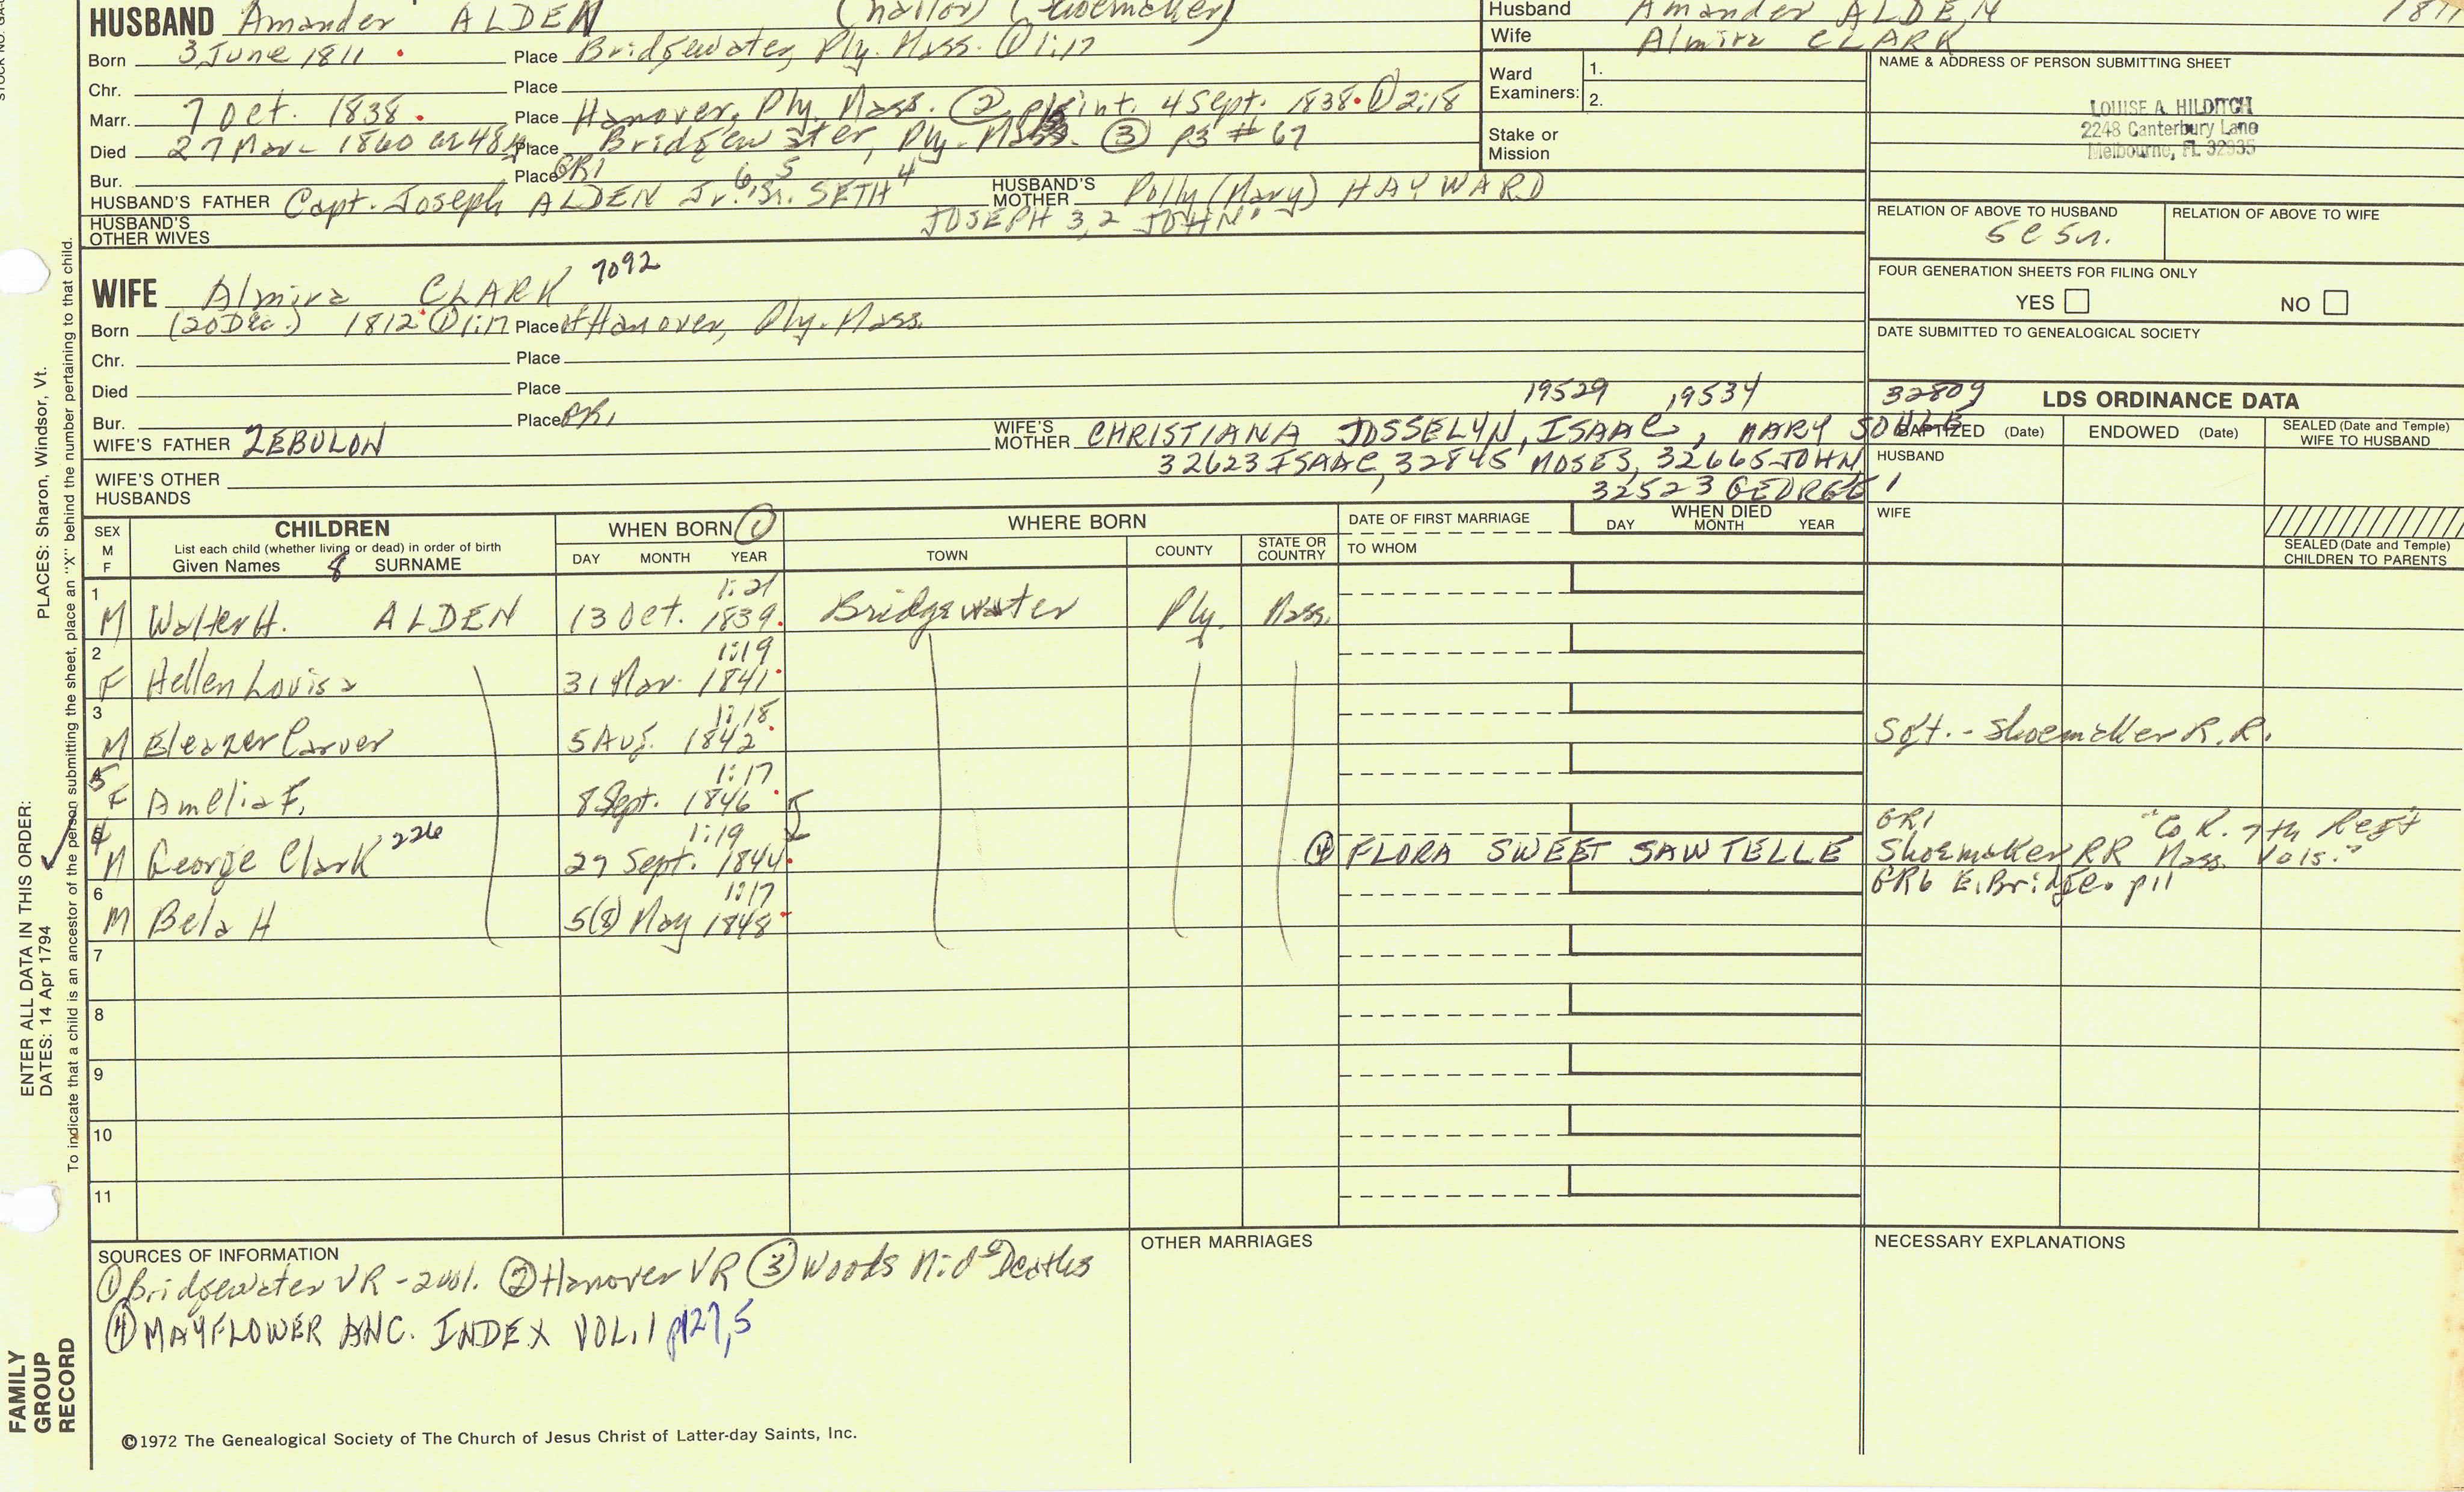 HUSBAND Amander ALDEN (Shoemaker)
Born 3 June 1811 Place Bridgewater, Ply. Mass. ① 1:17
Chr. Place
Marr. 7 Oct. 1838 Place Hanover, Ply. Mass. ② int. 4 Sept. 1838 ① 2:18
Died 27 Mar. 1860 Place Bridgewater, Ply. Mass. ③ p3 # 67
Bur. Place GR1
HUSBAND'S FATHER Capt. Joseph ALDEN Jr. 6 Sr. 5 SETH 4 HUSBAND'S MOTHER Polly (Mary) HAYWARD
HUSBAND'S OTHER WIVES JOSEPH 3,2 JOHN 1
Husband Amander ALDEN 1811
Wife Almira CLARK
Ward Examiners: 1.
2.
Stake or Mission
NAME & ADDRESS OF PERSON SUBMITTING SHEET
LOUISE A. HILDITCH
2248 Canterbury Lane
Melbourne, FL 32935
RELATION OF ABOVE TO HUSBAND RELATION OF ABOVE TO WIFE
FOUR GENERATION SHEETS FOR FILING ONLY
YES NO
DATE SUBMITTED TO GENEALOGICAL SOCIETY
WIFE Almira CLARK 7092
Born (20 Dec.) 1812 ① 1:17 Place of Hanover, Ply. Mass.
Chr. Place
Died Place
Bur. Place GR1
19529 19534 32809
WIFE'S FATHER ZEBULON WIFE'S MOTHER CHRISTIANA JOSSELYN, ISAAC, MARY SOULE
32623 ISAAC, 32845 MOSES, 32665 JOHN,
32523 GEORGE 1
WIFE'S OTHER HUSBANDS
LDS ORDINANCE DATA
BAPTIZED (Date) ENDOWED (Date) SEALED (Date and Temple) WIFE TO HUSBAND
HUSBAND
WIFE
SEALED (Date and Temple) CHILDREN TO PARENTS
SEX M F
CHILDREN
List each child (whether living or dead) in order of birth
Given Names 8 SURNAME
WHEN BORN ①
DAY MONTH YEAR
WHERE BORN
TOWN COUNTY STATE OR COUNTRY
DATE OF FIRST MARRIAGE
TO WHOM
WHEN DIED
DAY MONTH YEAR
1 M Walter H. ALDEN 1:21 13 Oct. 1839 Bridgewater Ply. Mass.
2 F Hellen Louisa 1:19 31 Mar. 1841
3 M Eleazer Carver 1:18 5 Aug. 1842 Sgt. - Shoemaker R.R.
5 F Amelia F. 1:17 8 Sept. 1846
4 M George Clark 226 1:19 27 Sept. 1844 ④ FLORA SWEET SAWTELLE GR1 "Co K. 7th Regt
Shoemaker RR Mass. Vols."
GR6 E. Bridge. p11
6 M Bela H 1:17 5(8) May 1848
7
8
9
10
11
SOURCES OF INFORMATION
① Bridgewater VR - 2 vol. ② Hanover VR ③ Woods Deaths
④ MAYFLOWER ANC. INDEX VOL. 1 p127,5
OTHER MARRIAGES
NECESSARY EXPLANATIONS
©1972 The Genealogical Society of The Church of Jesus Christ of Latter-day Saints, Inc.
PLACES: Sharon, Windsor, Vt.
ENTER ALL DATA IN THIS ORDER:
DATES: 14 Apr 1794
To indicate that a child is an ancestor of the person submitting the sheet, place an "X" behind the number pertaining to that child.
FAMILY
GROUP
RECORD